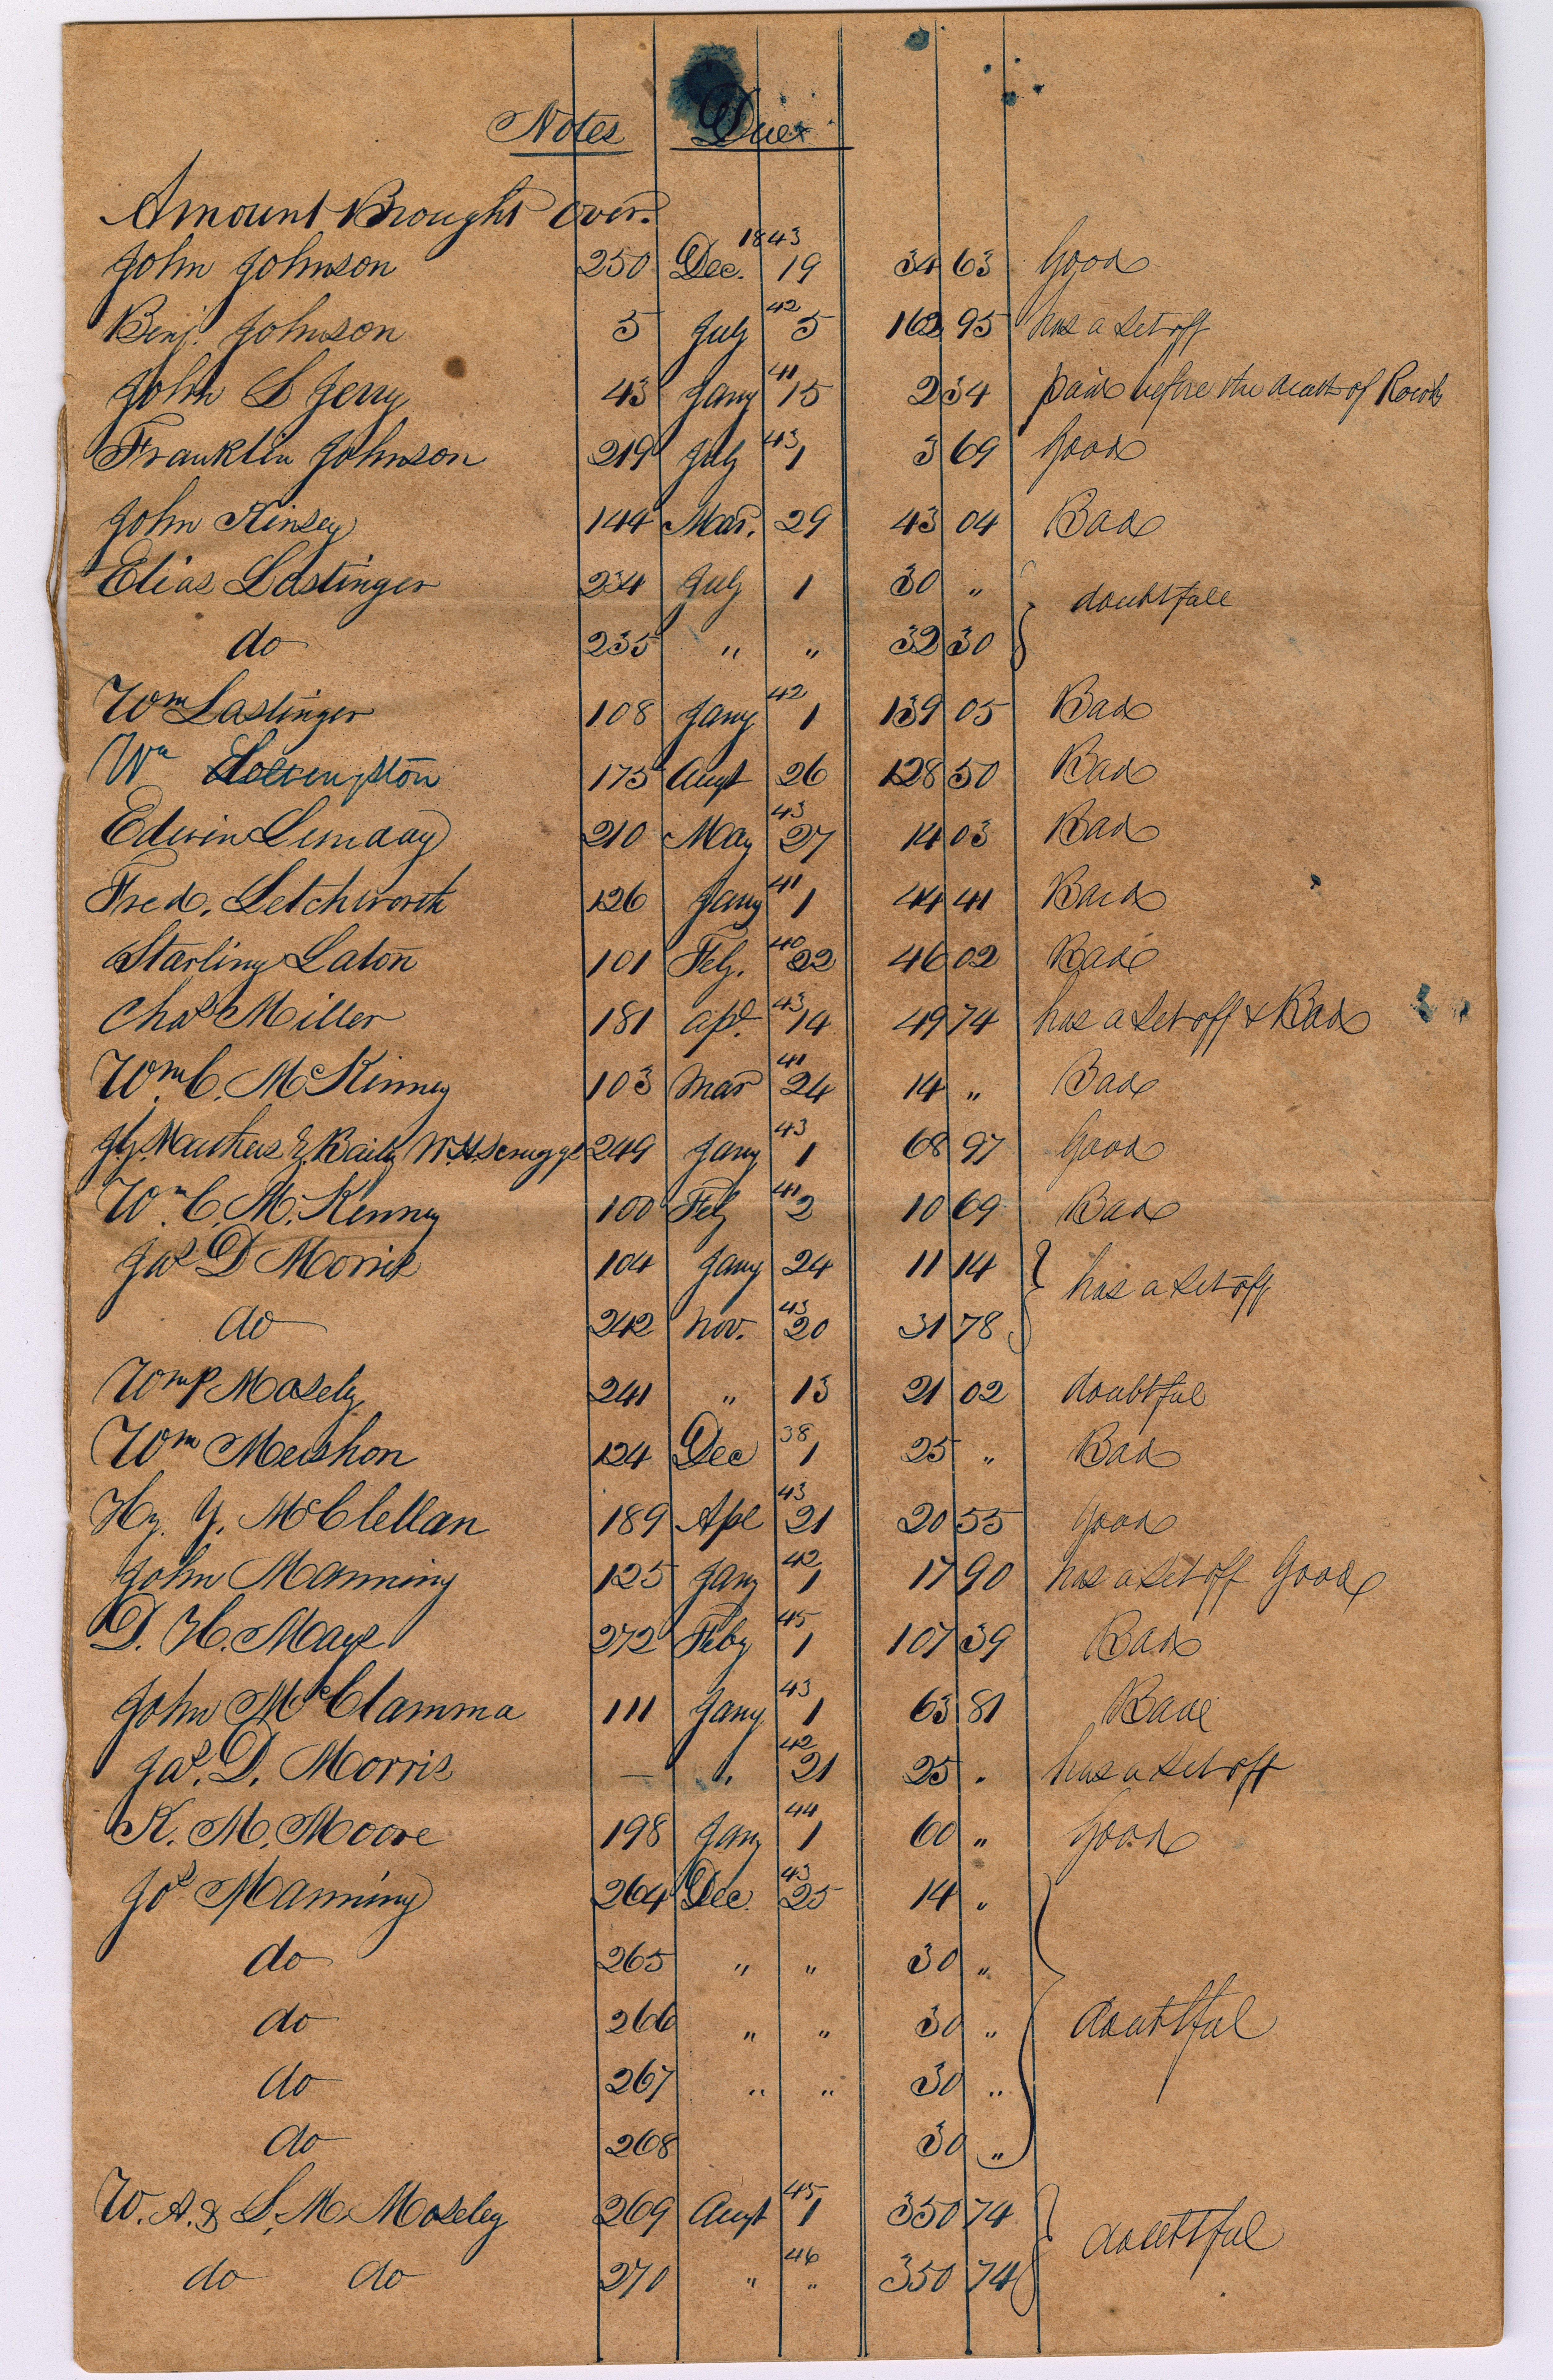 Notes Due
Amount Brought Over.
John Johnson 250 Dec. 1843 19 34 63 Good
Benj. Johnson 5 July 42 5 162 95 has a set off
John S Jerry 43 Jany 41 15 2 34 paid before the death of
Franklin Johnson 219 July 43 1 3 69 Good
John Kinsey 144 Mar. 29 43 04 Bad
Elias Lastinger 234 July 1 30 " doubtfull
do 235 " " 32 30
Wm Lastinger 108 Jany 42 1 139 05 Bad
Wm 175 Augt 26 128 50 Bad
Edwin 210 May 43 27 14 03 Bad
Fred. Letchworth 126 Jany 41 1 44 41 Bad
Starling Laton 101 Feb. 40 22 46 02 Bad
Chas Miller 181 apl. 43 14 49 74 has a set off & Bad
Wm. C. McKinney 103 Mar 41 24 14 " Bad
J.J. Mathews E. Baily W.H. Scruggs 249 Jany 43 1 68 97 Good
Wm. C. McKinney 100 Feb 41 2 10 69 Bad
Jas D Morris 104 Jany 24 11 14 has a set off
do 242 Nov. 43 20 31 78
Wm P Mosely 241 " 13 21 02 doubtful
Wm Mershon 124 Dec 38 1 25 " Bad
Hy. Y. McClellan 189 Apl 43 21 20 55 good
John Manning 125 Jany 42 1 17 90 has a set off Good
D. H. Mays 272 Feby 45 1 107 39 Bad
John McClamma 111 Jany 43 1 63 81 Bad
Jas. D. Morris — " 42 21 25 " has a set off
K. M. Moore 198 Jany 44 1 60 " Good
Jos Manning 264 Dec. 43 25 14 "
do 265 " " 30 "
do 266 " " 30 " doubtful
do 267 " " 30 "
do 268 30 "
W. A. & S. M. Moseley 269 Augt 45 1 350 74 doubtful
do do 270 " 46 " 350 74